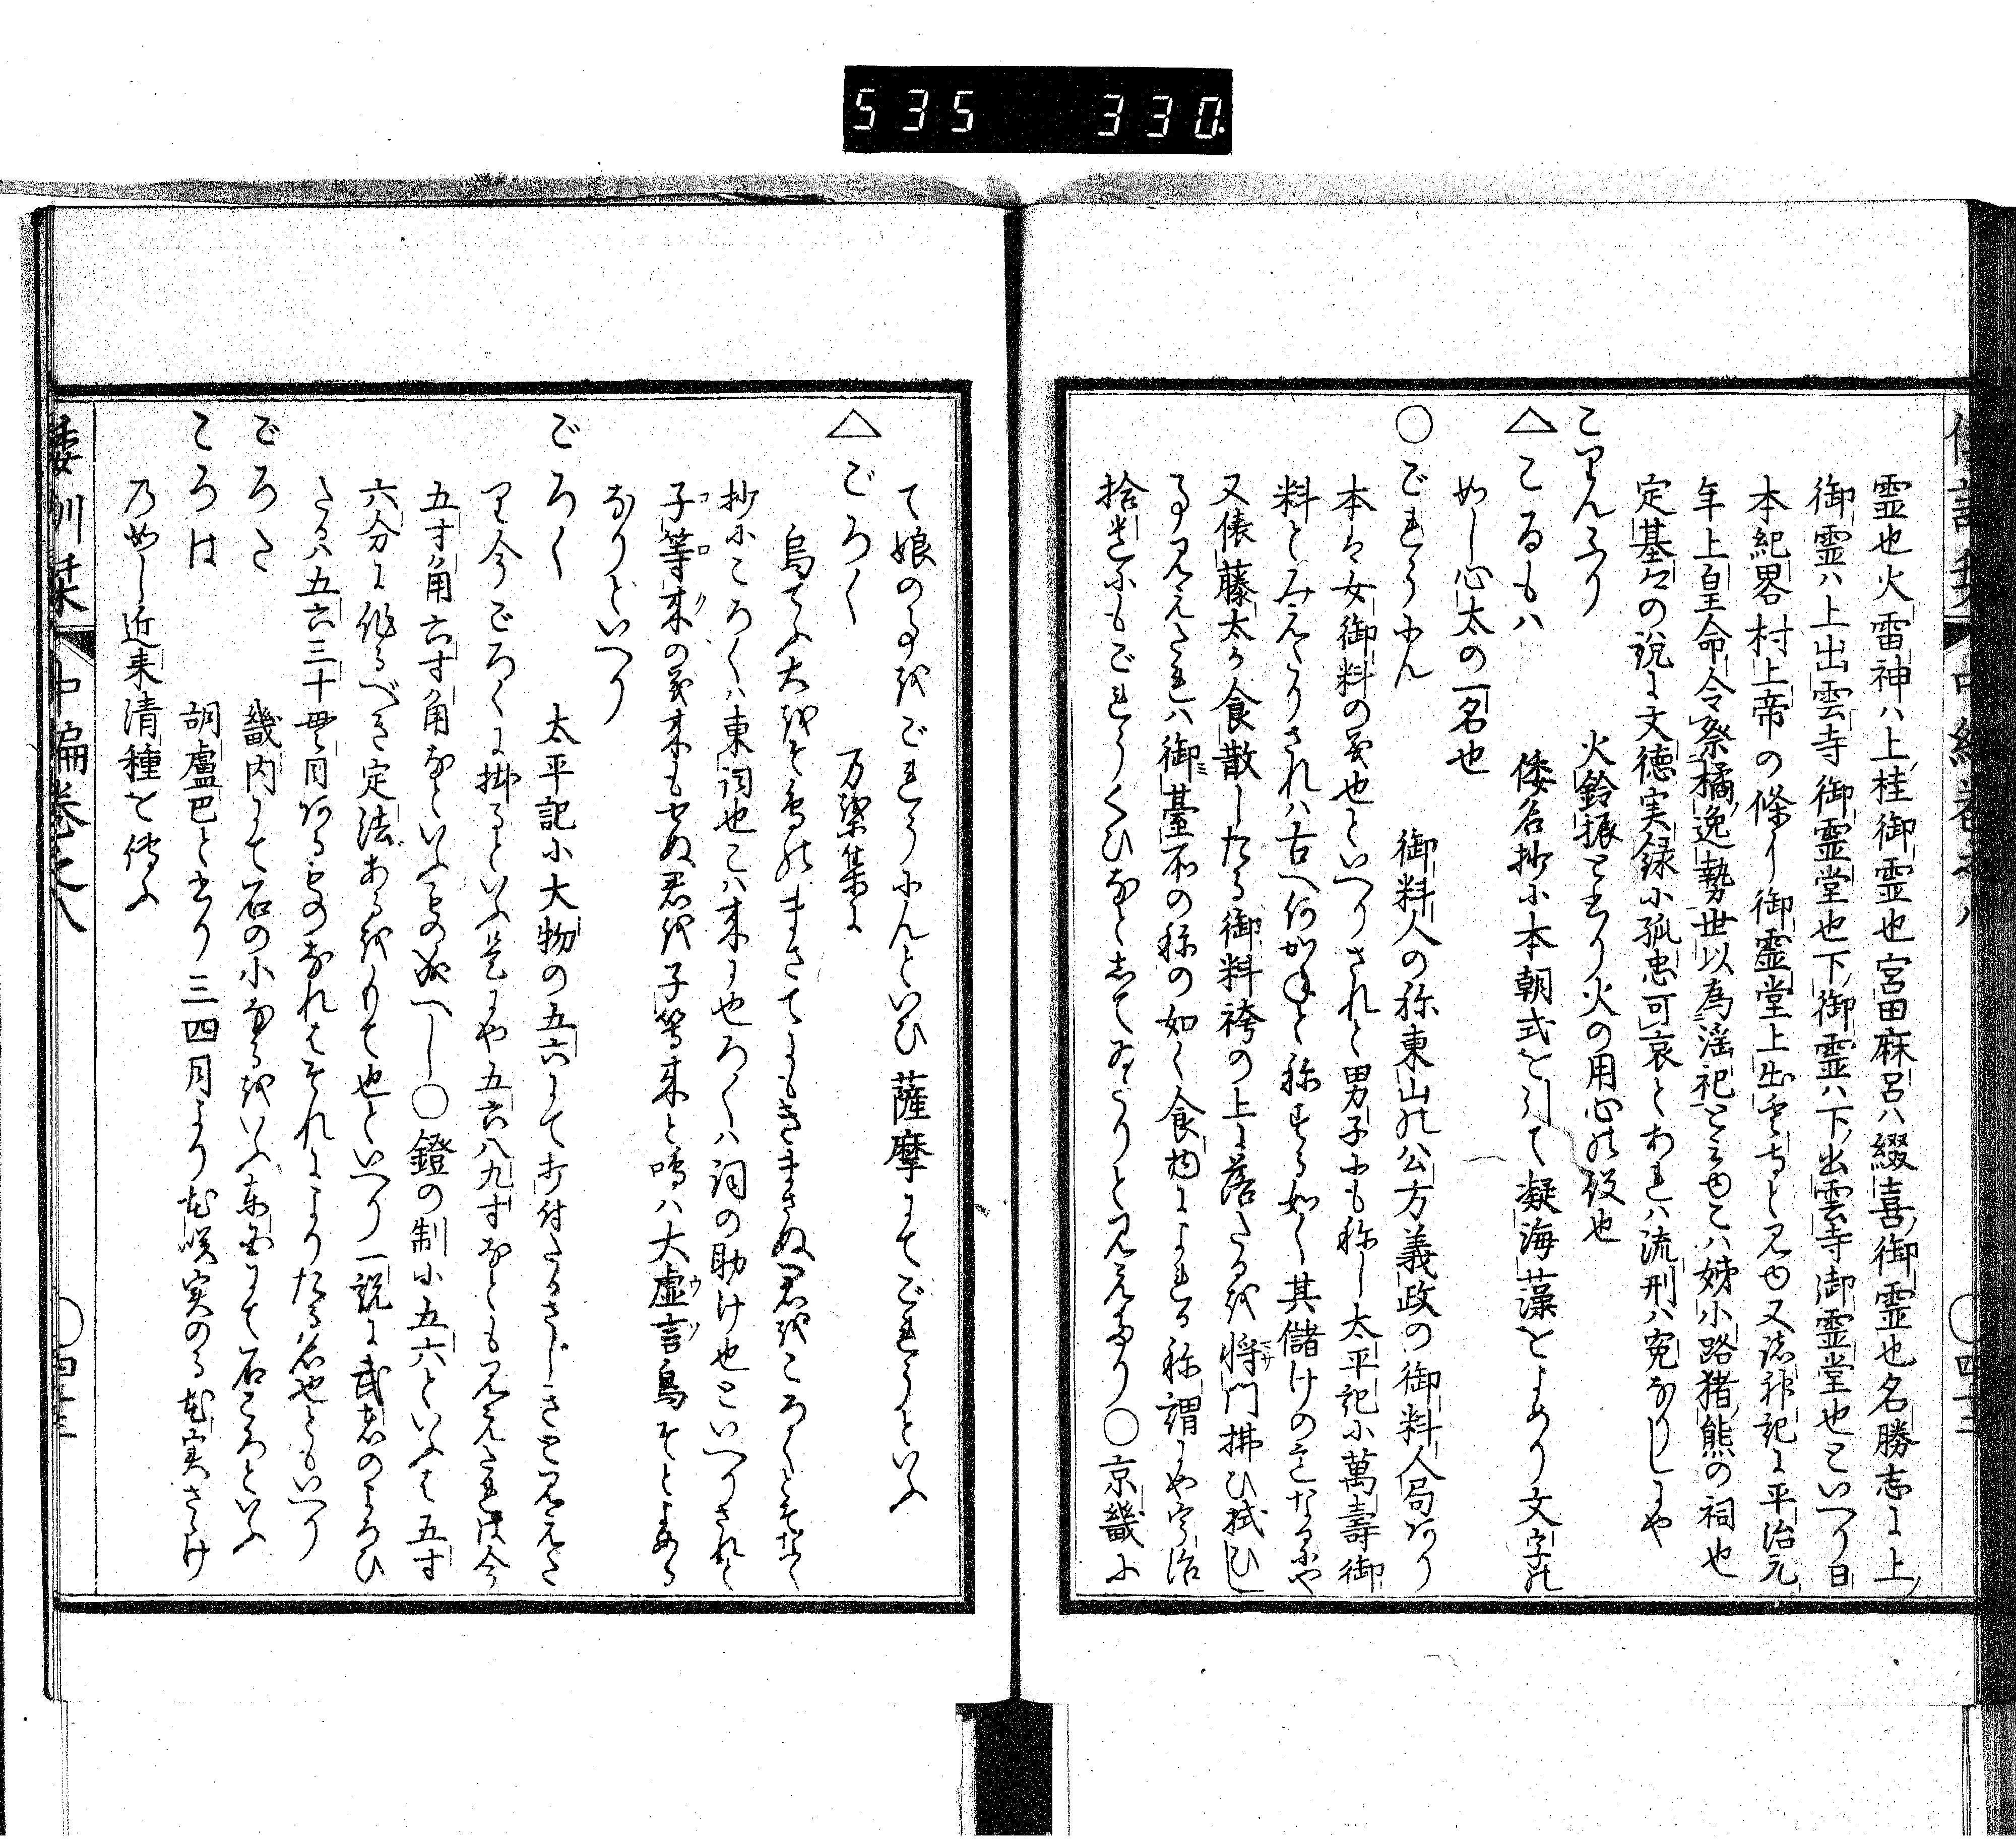 535 330
霊也火雷神ハ上桂御霊也宮田麻呂ハ綴喜御霊也名勝志に上
御霊ハ上出雲寺御霊堂也下御霊ハ下出雲寺御霊堂也といへり日
本紀畧村上帝の條に御霊堂上出雲寺と見ゆ又諸神記に平治元
年上皇命令祭橘逸勢世以為淫祀と云ゆこハ姉小路猪熊の祠也
定基々の説に文徳実録小孤忠可哀とあれハ流刑ハ冤なりしにや
こりんふり 火鈴振と書り火の用心の役也
△こるもハ 倭名抄小本朝式を引て凝海藻をよめり文字の
めし心太の一名也
○ごれうにん 御料人の称東山の公方義政の御料人局あり
本は女御料の義也といへりされと男子にも称し太平記小萬壽御
料とみえたりされハ古へ何がしと称する如く其儲けの意なるにや
又俵藤太か食散したる御料袴の上に落たるを将門拂ひ拭ひし
事見えたれハ御臺所の称の如く食物によれる称謂にや宇治
拾遺にもごれうくひなとしてゐたりと見えたり○京畿に
て娘の事をごれうにんといひ薩摩にてごれうといふ
△ごろく 万葉集に
烏てふ大をそ鳥のまさてにもきまさぬ君をころくとそなく
抄にころくハ東詞也こハ来に也ろくハ詞の助け也といへりされと
子等来の義来もせぬ君を子等来と鳴ハ大虚言鳥そとよめる
なりといへり
ごろく 太平記小大物の五六にて打付たるさしきと見えた
り今ごろくに掛るといふ是にや五六八九寸なとも見えたれは今
五寸角六寸角なといふもの成へし○鐙の制小五六といふは五寸
六分に作るべき定法あるをもて也といへり一説に武者のよろひ
たるハ五六三十貫目あるものなれはそれによりたる名也ともいへり
ごろた 畿内にて石の小なるをいふ東国にて石ころといふ
ころは 胡盧巴と書り三四月より花咲実のる花実さゝけ
乃如し近来清種を傳ふ
倭訓栞 中編巻之八